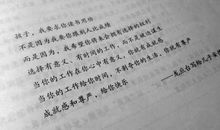 孩子，我要求你读书用功，
不是因为我要你跟别人比成绩，
而是因为，我希望你将来会拥有选择的权利，
选择有意义、有时间的工作，而不是被迫谋生。
当你的工作在你心中有意义，你就有成就感。
当你的工作给你时间，不剥夺你的生活，你就有尊严。
成就感和尊严，给你快乐。
——龙应台写给儿子安德烈